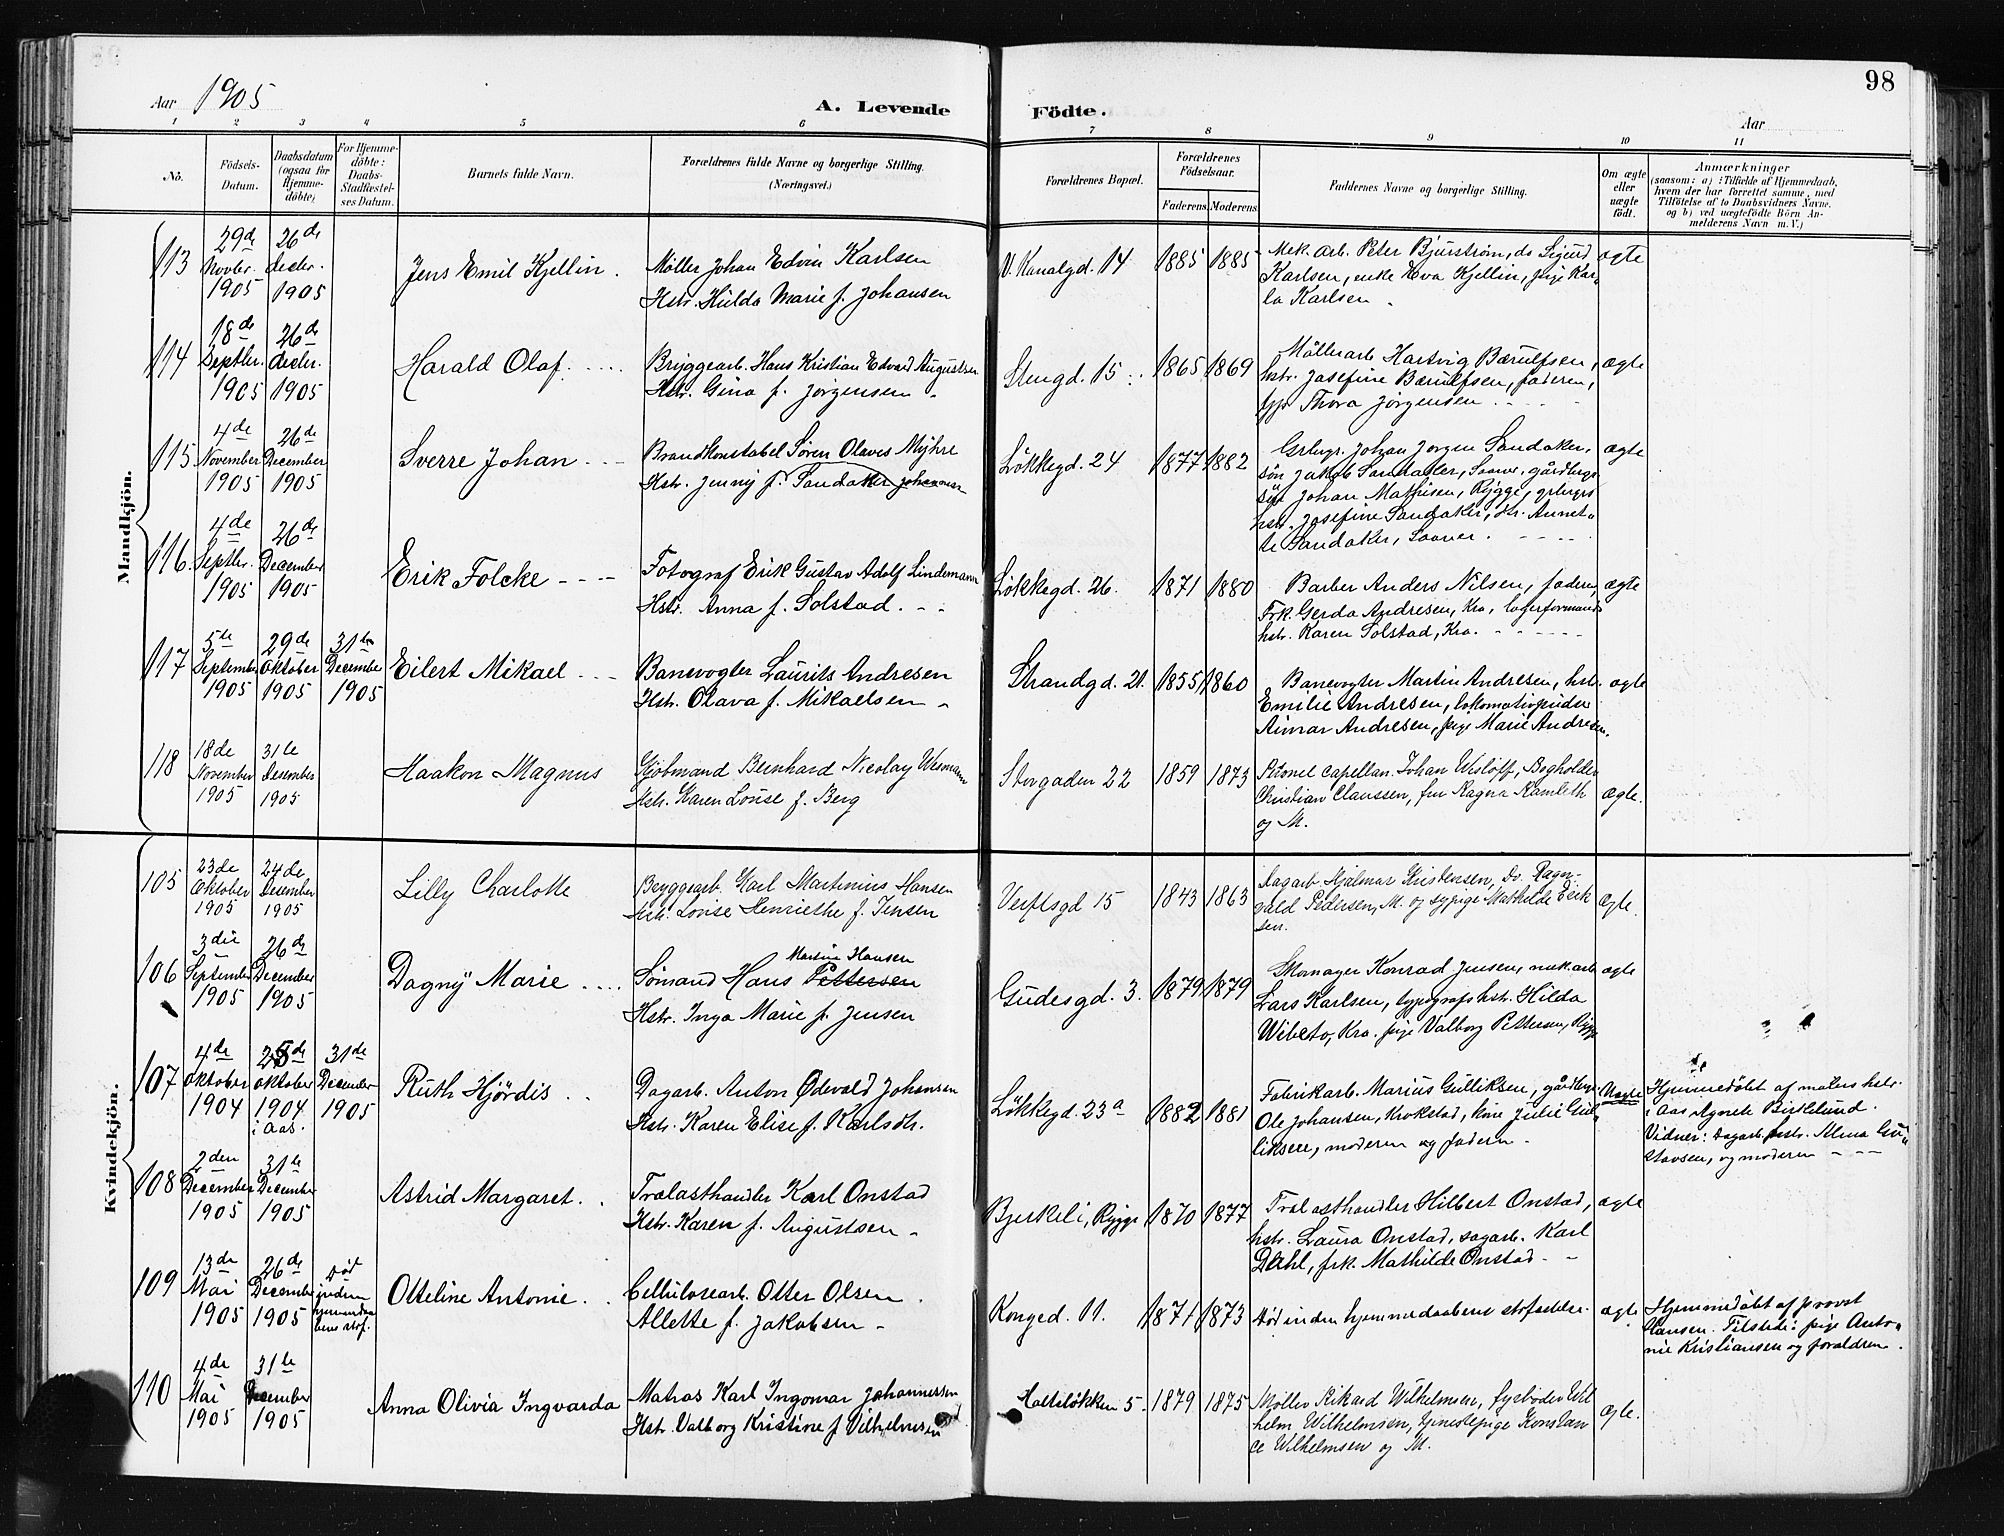 98
Aar 1905
A. Levende Födte.
Aar
1 2 3 4 5 6 7 8 9 10 11
No.
Födsels-
Datum.
Daabsdatum
(ogsaa for
Hjemme-
döbte)
For Hjemme-
döbte:
Daabs-
Stadfæstel-
ses Datum.
Barnets fulde Navn.
Forældrenes fulde Navne og borgerlige Stilling.
(Næringsvei.)
Forældrenes Bopæl.
Forældrenes
Födselsaar.
Faderens. Moderens.
Faddernes Navne og borgerlige Stilling.
Om ægte
eller
uægte
födt.
Anmærkninger
(saasom: a) i Tilfælde af Hjemmedaab,
hvem der har forrettet samme, med
Tilföielse af to Daabsvidners Navne,
og b) ved uægtefödte Börn An-
melderens Navn m. V.)
Mandkjön.
113
29de
Novbr.
1905
26de
decbr.
1905
Jens Emil Kjellin.
Møller Johan Edvin Karlsen
Hstr. Hulda Marie f. Johansen
V. Kanalgd. 14
1885 1885
Mek. arb. Peter Bjurstrøm, do Sigurd
Karlsen, enke Eva Kjellin, pige Kar-
la Karlsen.
ægte
114
18de
Septbr.
1905
26de
decbr.
1905
Harald Olaf.
Bryggearb. Hans Kristian Edvard Augustsen
Hstr. Gina f. Jørgensen.
Stengd. 15.
1865 1869
Møllerarb Hartvig Bærulfsen,
hstr. Josefine Bærulfsen, faderen,
Thora Jørgensen
ægte
115
4de
November
1905
26de
December
1905
Sverre Johan
Brandkonstabel Søren Olaves Myhre
Hstr. Jenny f. Sandaker Johannesen
Løkkegd. 24
1877 1882
Grbgr. Johan Jørgen Sandaker,
søn Jakob Sandaker, Saaner, gårdbrgs
søn Johan Mathisen, Rygge, grbrgrs
hstr. Josefine Sandaker, dtr. Annet-
te Sandaker, Saaner.
ægte
116
4de
Septbr.
1905
26de
December
1905
Erik Folcke
Fotograf Erik Gustav Adolf Lindemann
Hstr. Anna f. Solstad.
Løkkegd. 26.
1871 1880
Barber Anders Nilsen, faderen,
Frk. Gerda Andresen, Kra, lagerformands
hstr. Karen Solstad, Kra.
ægte
117
5te
September
1905
29de
Oktober
1905
31te
December
1905
Eilert Mikael
Banevogter Laurits Andresen
Hstr. Olava f. Mikaelsen
Strandgd. 21.
1855 1860
Banevogter Martin Andresen, hstr.
Emilie Andresen, lokomotivpudser
Aimar Andresen, pige Marie Andresen.
ægte
118
18de
November
1905
31te
Desember
1905
Haakon Magnus
Kjøbmand Bernhard Nicolay Wesmann
Hstr. Karen Louise f. Berg
Storgaden 22
1859 1873
Personel capellan Johan Wisløff, Bogholder
Christian Claussen, fru Ragna Ramleth
og M.
ægte.
Kvindekjön.
105
23de
Oktober
1905
24de
Desember
1905
Lilly Charlotte
Bryggearb. Karl Martinius Hansen
Hstr. Louise Henriethe f. Jensen
Verftsgd 15
1843 1863
Sagarb. Hjalmar Kristensen, Do. Ragn-
vald Pedersen, M. og sypige Mathilde Erik
sen.
ægte.
106
3die
September
1905
26de
December
1905
Dagny Marie
Martin Hansen
Sømand Hans Pettersen
Hstr. Inga Marie f. Jensen
Gudesgd. 3.
1879 1879
Skomager Konrad Jensen, mek. arb
Lars Karlsen, typografs hstr. Hilda
Wibeto, Kra. pige Valborg Pettersen, Rygge
ægte
107
4de
Oktober
1904
25de
Oktober
1904.
i Aas.
31de
December
1905
Ruth Hjørdis
Dagarb. Anton Ødevald Johansen
Hstr. Karen Elise f. Karlsdtr.
Løkkegd. 23a
1882 1881
Fabrikarb. Marius Gulliksen, gårdbrgr.
Ole Johansen, Krokstad, kone Julie Gul-
liksen, moderen og faderen.
Uægte
Hjemmedøbt af malers hstr.
i Aas Agnete Birkelund.
Vidner: Dagarb. hstr. Alma Gu-
stavsen, og moderen
108
2den
December
1905
31te
December
1905
Astrid Margaret.
Trælasthandler Karl Onstad
Hstr. Karen f. Augustsen
Bjerkeli, Rygge
1870 1877
Trælasthandler Hilbert Onstad,
hstr. Laura Onstad, sagarb. Karl
Dahl, frk. Mathilde Onstad
ægte
109
13de
Mai
1905
26de
December
1905
Død
inden
hjemmedaa
bens stof.
Otteline Antonie.
Cellulosearb. Otter Olsen.
Allette f. Jakobsen
Konged. 11.
1871 1873
Død inden hjemmedaabens stofæstelse.
ægte
Hjemmedøbt af provst
Hansen. Tilstede: pige Anto-
nie Kristiansen og forældrene.
110
4de
Mai
1905
31te
December
1905
Anna Olivia Ingvarda
Matros Karl Ingomar Johannessen
Hstr. Valborg Kristine f. Vilhelmsen
Holteløkken 5.
1879 1875
Møller Rikard Wilhelmsen, fyrbøder Wil
helm Wilhelmsen, tjenestepige Konstan
ce Wilhelmsen og M.
ægte.